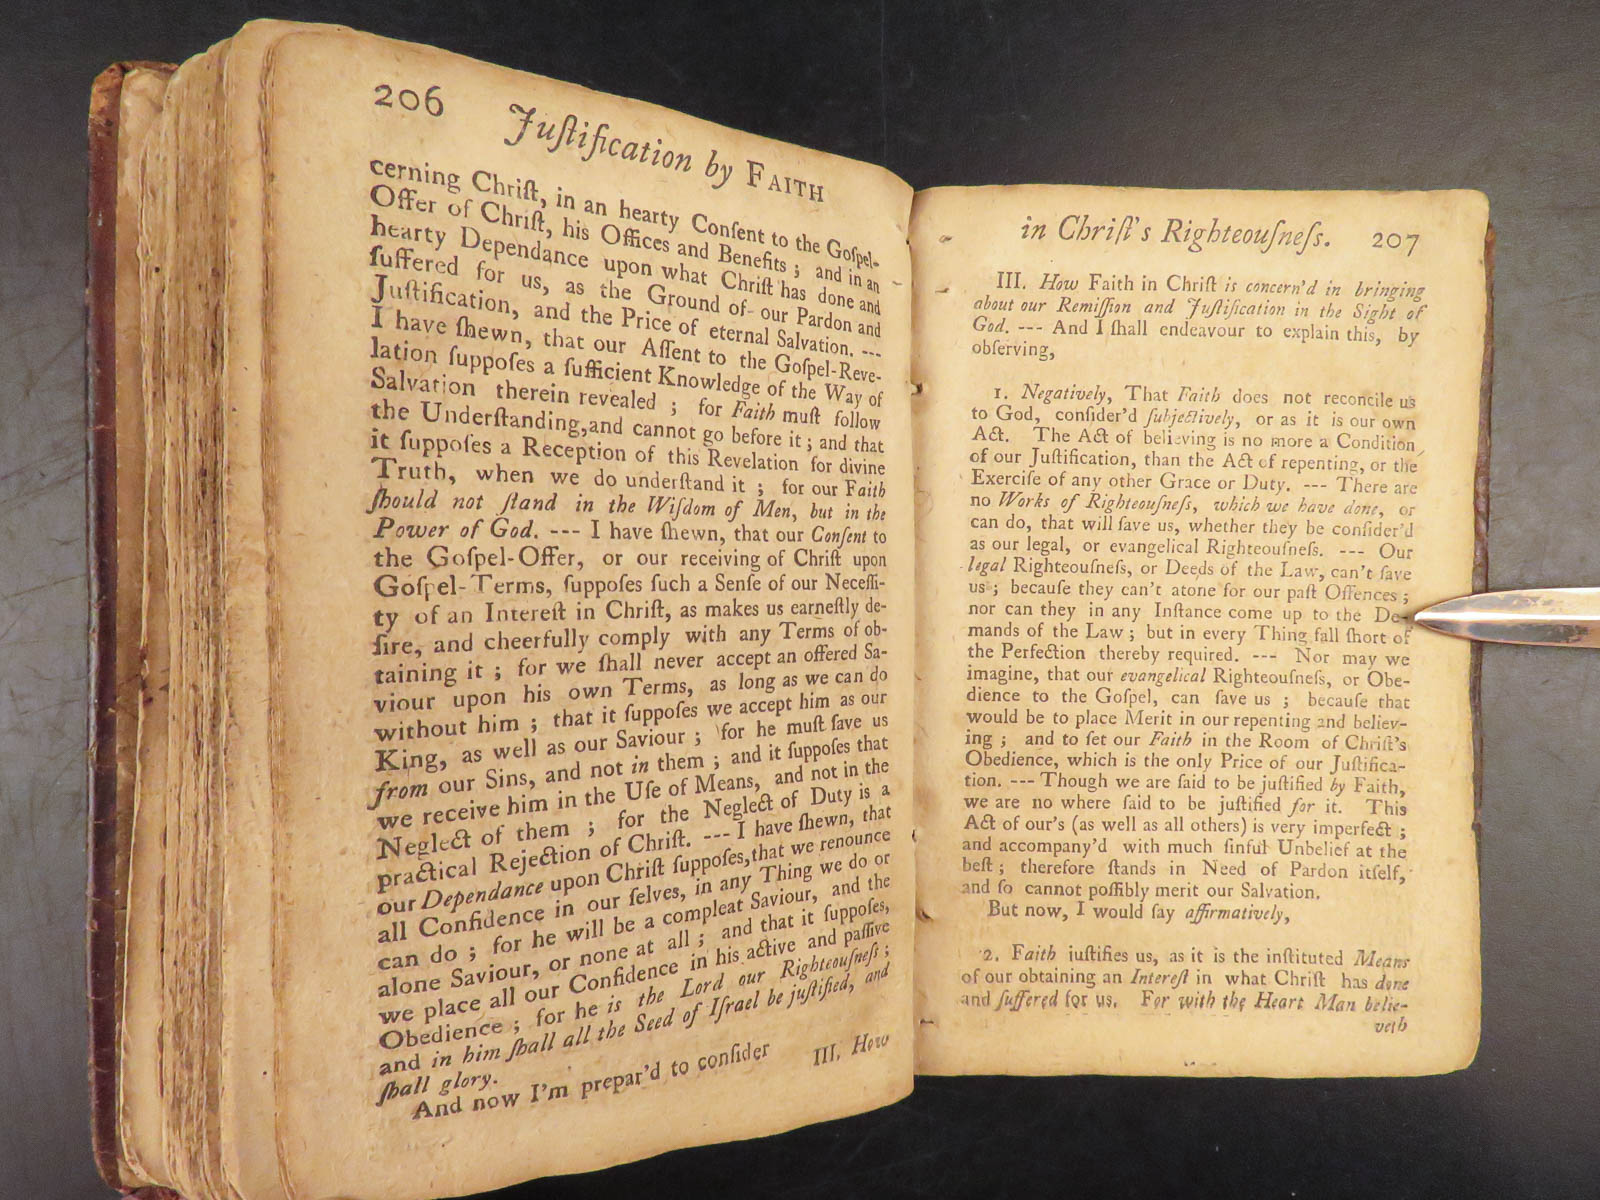 206 Juſtification by FAITH
cerning Chriſt, in an hearty Conſent to the Goſpel-
Offer of Chriſt, his Offices and Benefits; and in an
hearty Dependance upon what Chriſt has done and
ſuffered for us, as the Ground of our Pardon and
Juſtification, and the Price of eternal Salvation. ---
I have ſhewn, that our Aſſent to the Goſpel-Reve-
lation ſuppoſes a ſufficient Knowledge of the Way of
Salvation therein revealed; for Faith muſt follow
the Underſtanding, and cannot go before it; and that
it ſuppoſes a Reception of this Revelation for divine
Truth, when we do underſtand it; for our Faith
ſhould not ſtand in the Wiſdom of Men, but in the
Power of God. --- I have ſhewn, that our Conſent to
the Goſpel-Offer, or our receiving of Chriſt upon
Goſpel-Terms, ſuppoſes ſuch a Senſe of our Neceſſi-
ty of an Intereſt in Chriſt, as makes us earneſtly de-
ſire, and cheerfully comply with any Terms of ob-
taining it; for we ſhall never accept an offered Sa-
viour upon his own Terms, as long as we can do
without him; that it ſuppoſes we accept him as our
King, as well as our Saviour; for he muſt ſave us
from our Sins, and not in them; and it ſuppoſes that
we receive him in the Uſe of Means, and not in the
Neglect of them; for the Neglect of Duty is a
practical Rejection of Chriſt. --- I have ſhewn, that
our Dependance upon Chriſt ſuppoſes, that we renounce
all Confidence in our ſelves, in any Thing we do or
can do; for he will be a compleat Saviour, and the
alone Saviour, or none at all; and that it ſuppoſes,
we place all our Confidence in his active and paſſive
Obedience; for he is the Lord our Righteouſneſs;
and in him ſhall all the Seed of Iſrael be juſtified, and
ſhall glory.
And now I'm prepar'd to conſider
III. How
in Chriſt's Righteouſneſs. 207
III. How Faith in Chriſt is concern'd in bringing
about our Remiſſion and Juſtification in the Sight of
God. --- And I ſhall endeavour to explain this, by
obſerving,
1. Negatively, That Faith does not reconcile us
to God, conſider'd ſubjectively, or as it is our own
Act. The Act of believing is no more a Condition
of our Juſtification, than the Act of repenting, or the
Exerciſe of any other Grace or Duty. --- There are
no Works of Righteouſneſs, which we have done, or
can do, that will ſave us, whether they be conſider'd
as our legal, or evangelical Righteouſneſs. --- Our
legal Righteouſneſs, or Deeds of the Law, can't ſave
us; becauſe they can't atone for our paſt Offences;
nor can they in any Inſtance come up to the De-
mands of the Law; but in every Thing fall ſhort of
the Perfection thereby required. --- Nor may we
imagine, that our evangelical Righteouſneſs, or Obe-
dience to the Goſpel, can ſave us; becauſe that
would be to place Merit in our repenting and believ-
ing; and to ſet our Faith in the Room of Chriſt's
Obedience, which is the only Price of our Juſtifica-
tion. --- Though we are ſaid to be juſtified by Faith,
we are no where ſaid to be juſtified for it. This
Act of our's (as well as all others) is very imperfect;
and accompany'd with much ſinful Unbelief at the
beſt; therefore ſtands in Need of Pardon itſelf,
and ſo cannot poſſibly merit our Salvation.
But now, I would ſay affirmatively,
2. Faith juſtifies us, as it is the inſtituted Means
of our obtaining an Intereſt in what Chriſt has done
and ſuffered for us. For with the Heart Man belie-
veth